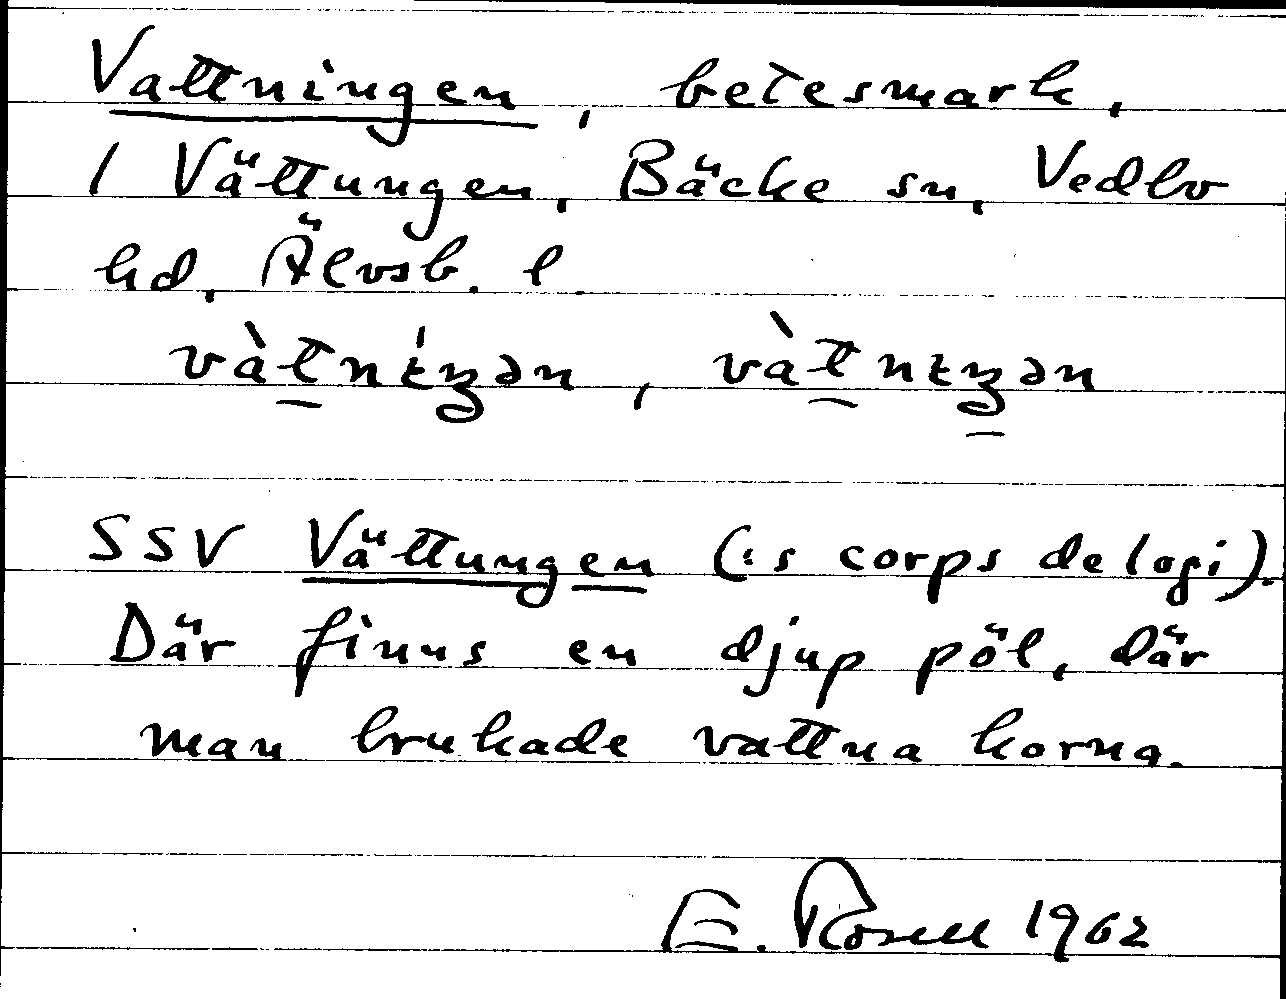 Vattningen, betesmark,
1 Vättungen, Bäcke sn, Vedbo
hd, Älvsb. l.
SSV Vättungen (:s corps de logi).
Där finns en djup pöl, där
man brukade vattna korna.
E. Rosell 1962